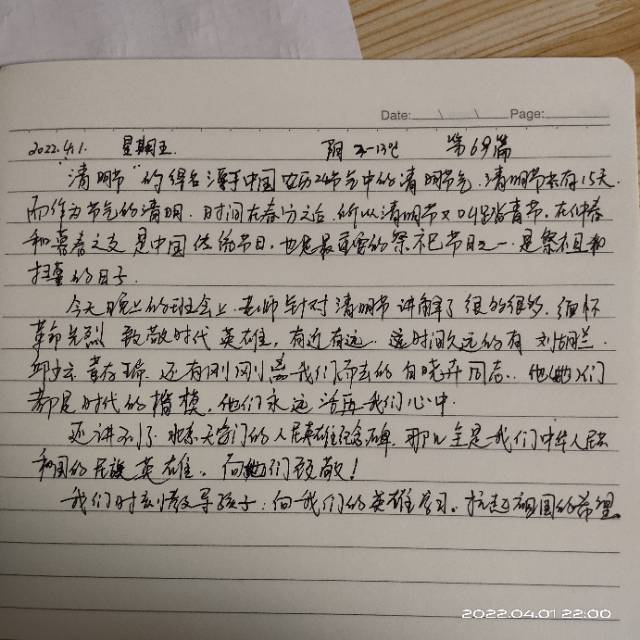 Date: Page:
2022.4.1. 星期五. 阴 3-13℃ 第69篇
"清明节"的得名源于中国农历24节气中的清明节气.清明节共有15天
而作为节气的清明.时间在春分之后.所以清明节又叫踏青节.在仲春
和暮春之交 是中国传统节日.也是最重要的祭祀节日之一.是祭祖和
扫墓的日子.
今天晚上的班会上.老师针对清明节讲解了很多很多,缅怀
革命先烈 致敬时代英雄,有近有远.远时间久远的有刘胡兰.
邱少云 黄存瑞 还有刚刚离我们而去的 同志.他她们
都是时代的楷模,他们永远活再我们心中.
还讲了 北京天安门的人民英雄纪念碑,那儿全是我们中华人民共
和国的民族英雄.向她们致敬!
我们时刻教导孩子:向我们的英雄学习.扛起祖国的希望
2022.04.01 22:00